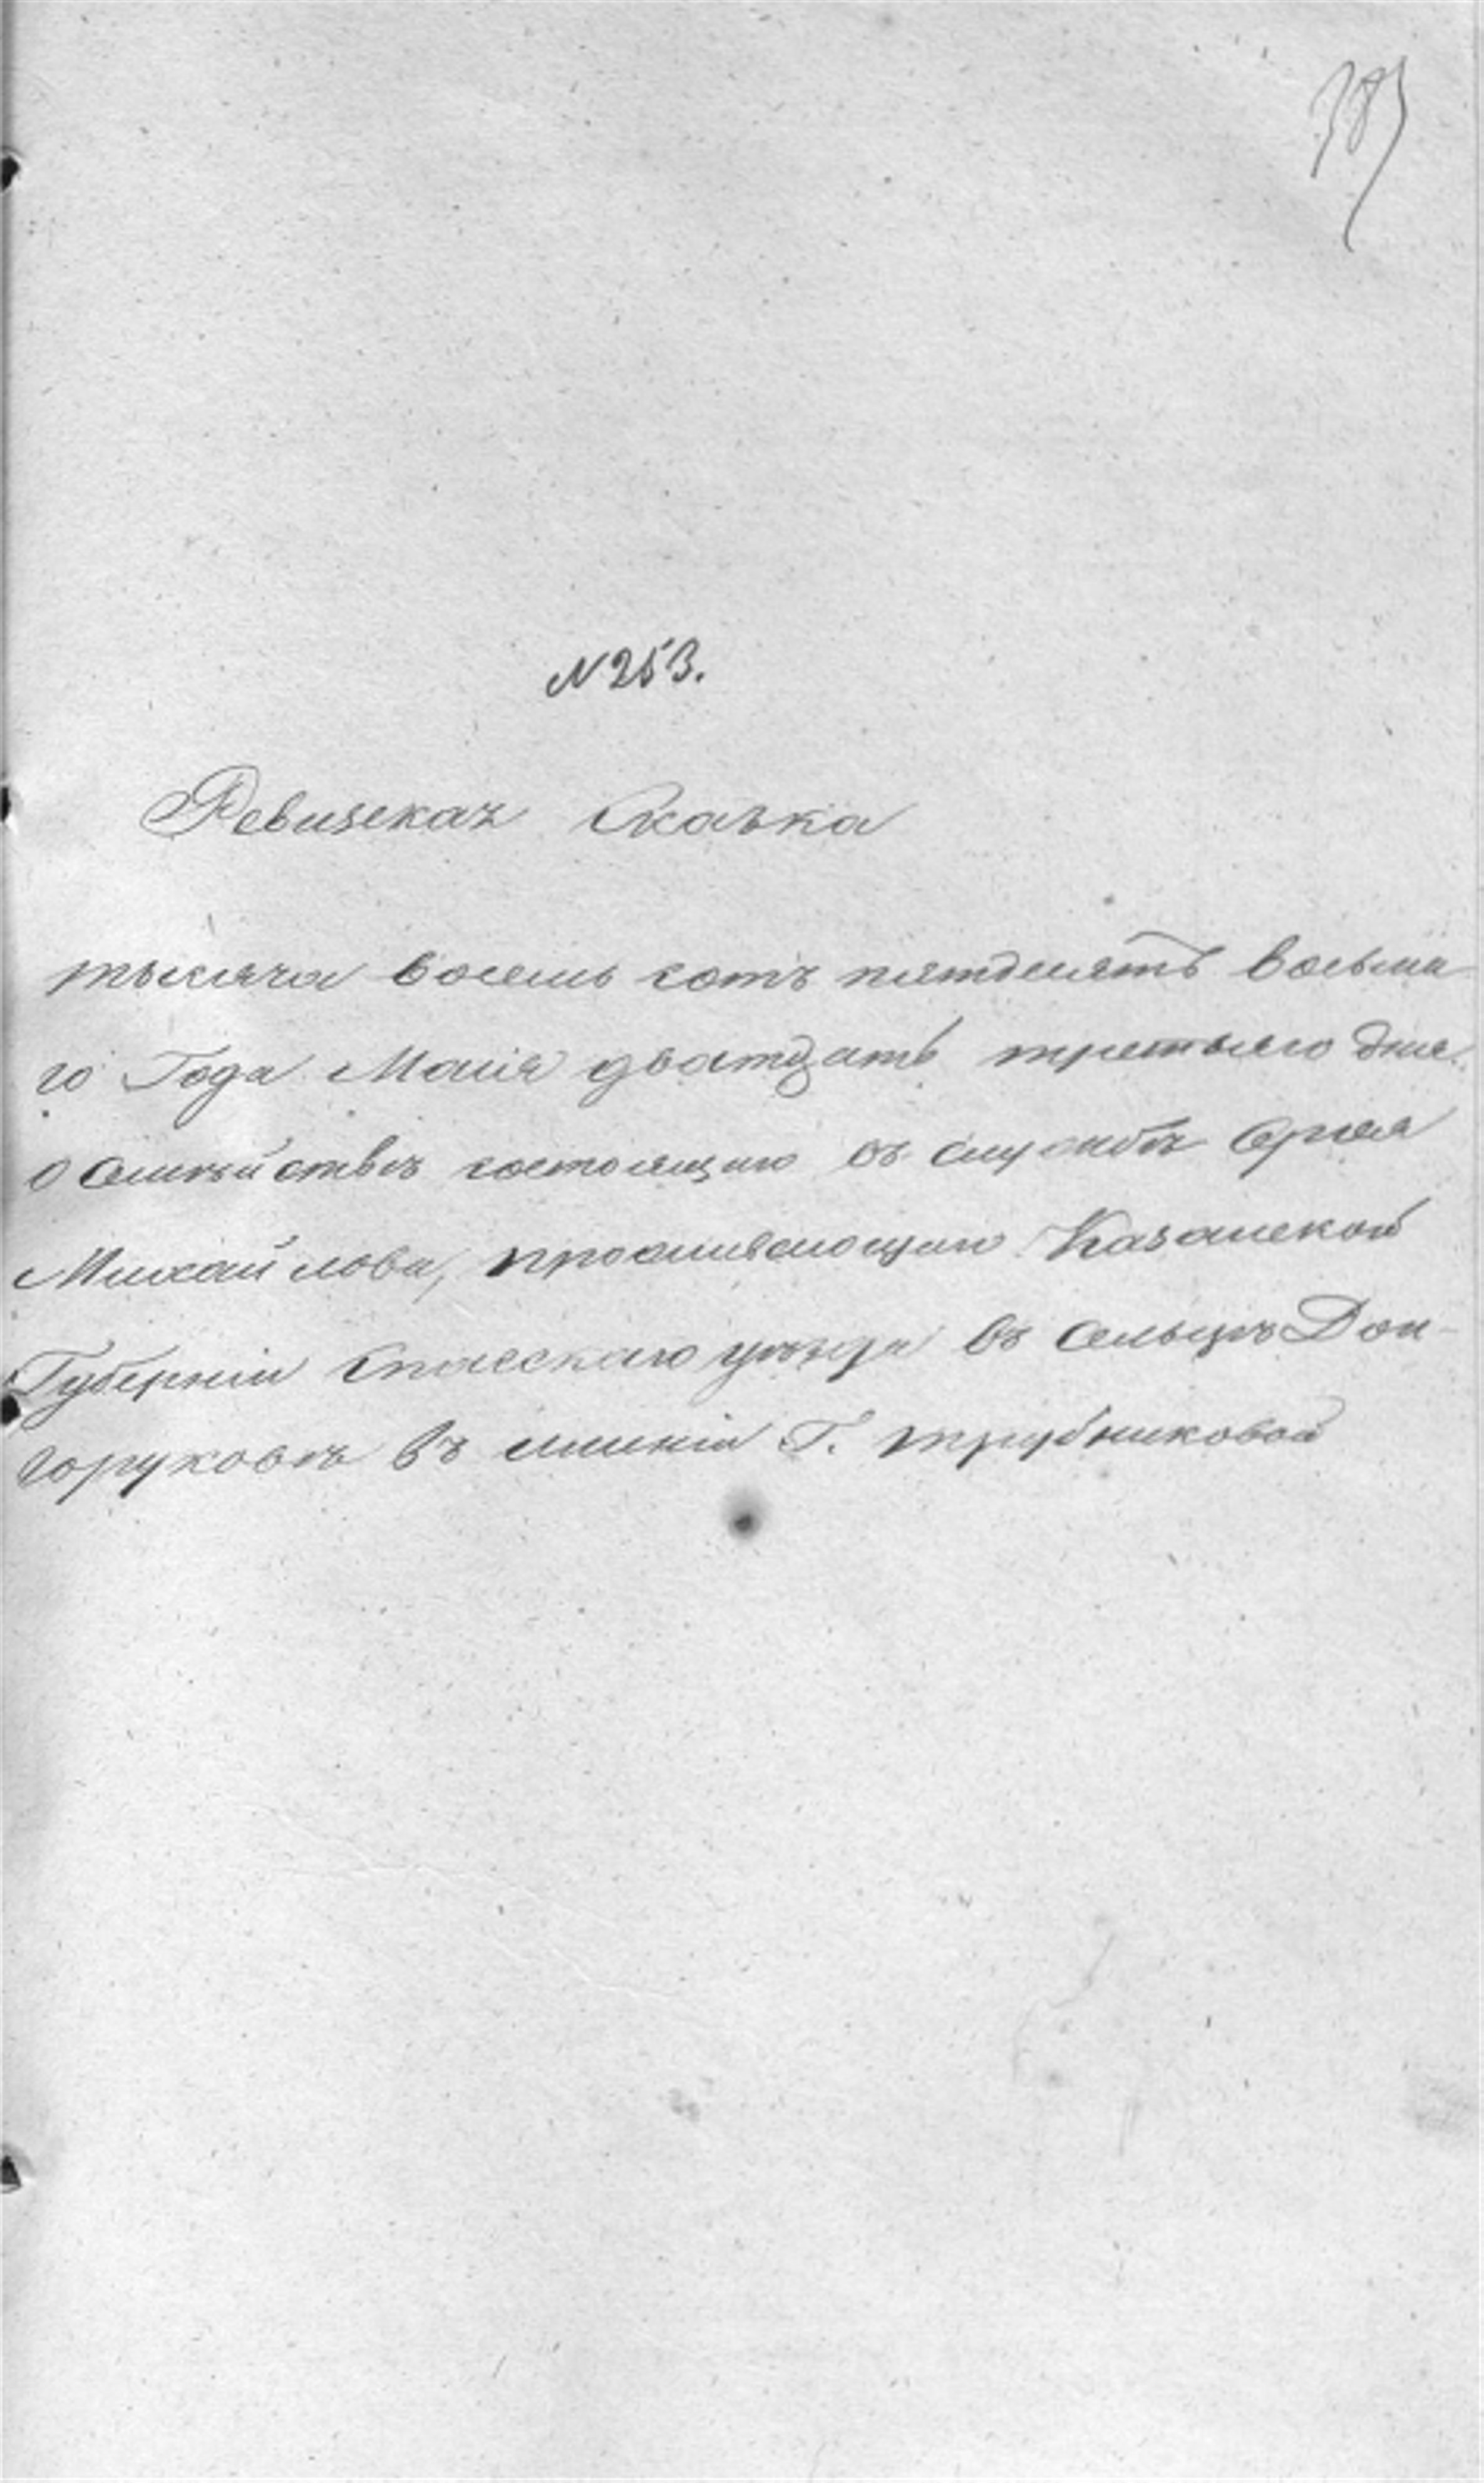 № 253.
Ревизская Сказка
тысяча восемь сотъ пятдесятъ восьма-
го Года Маія дватцать третьяго дня.
о Семействѣ состоящаго въ службѣ
Михайлова, проживающаго Казанской
Губерніи Спасскаго уѣзда въ Сельцѣ Дол-
горуковѣ въ имѣніи Г. трубниковой